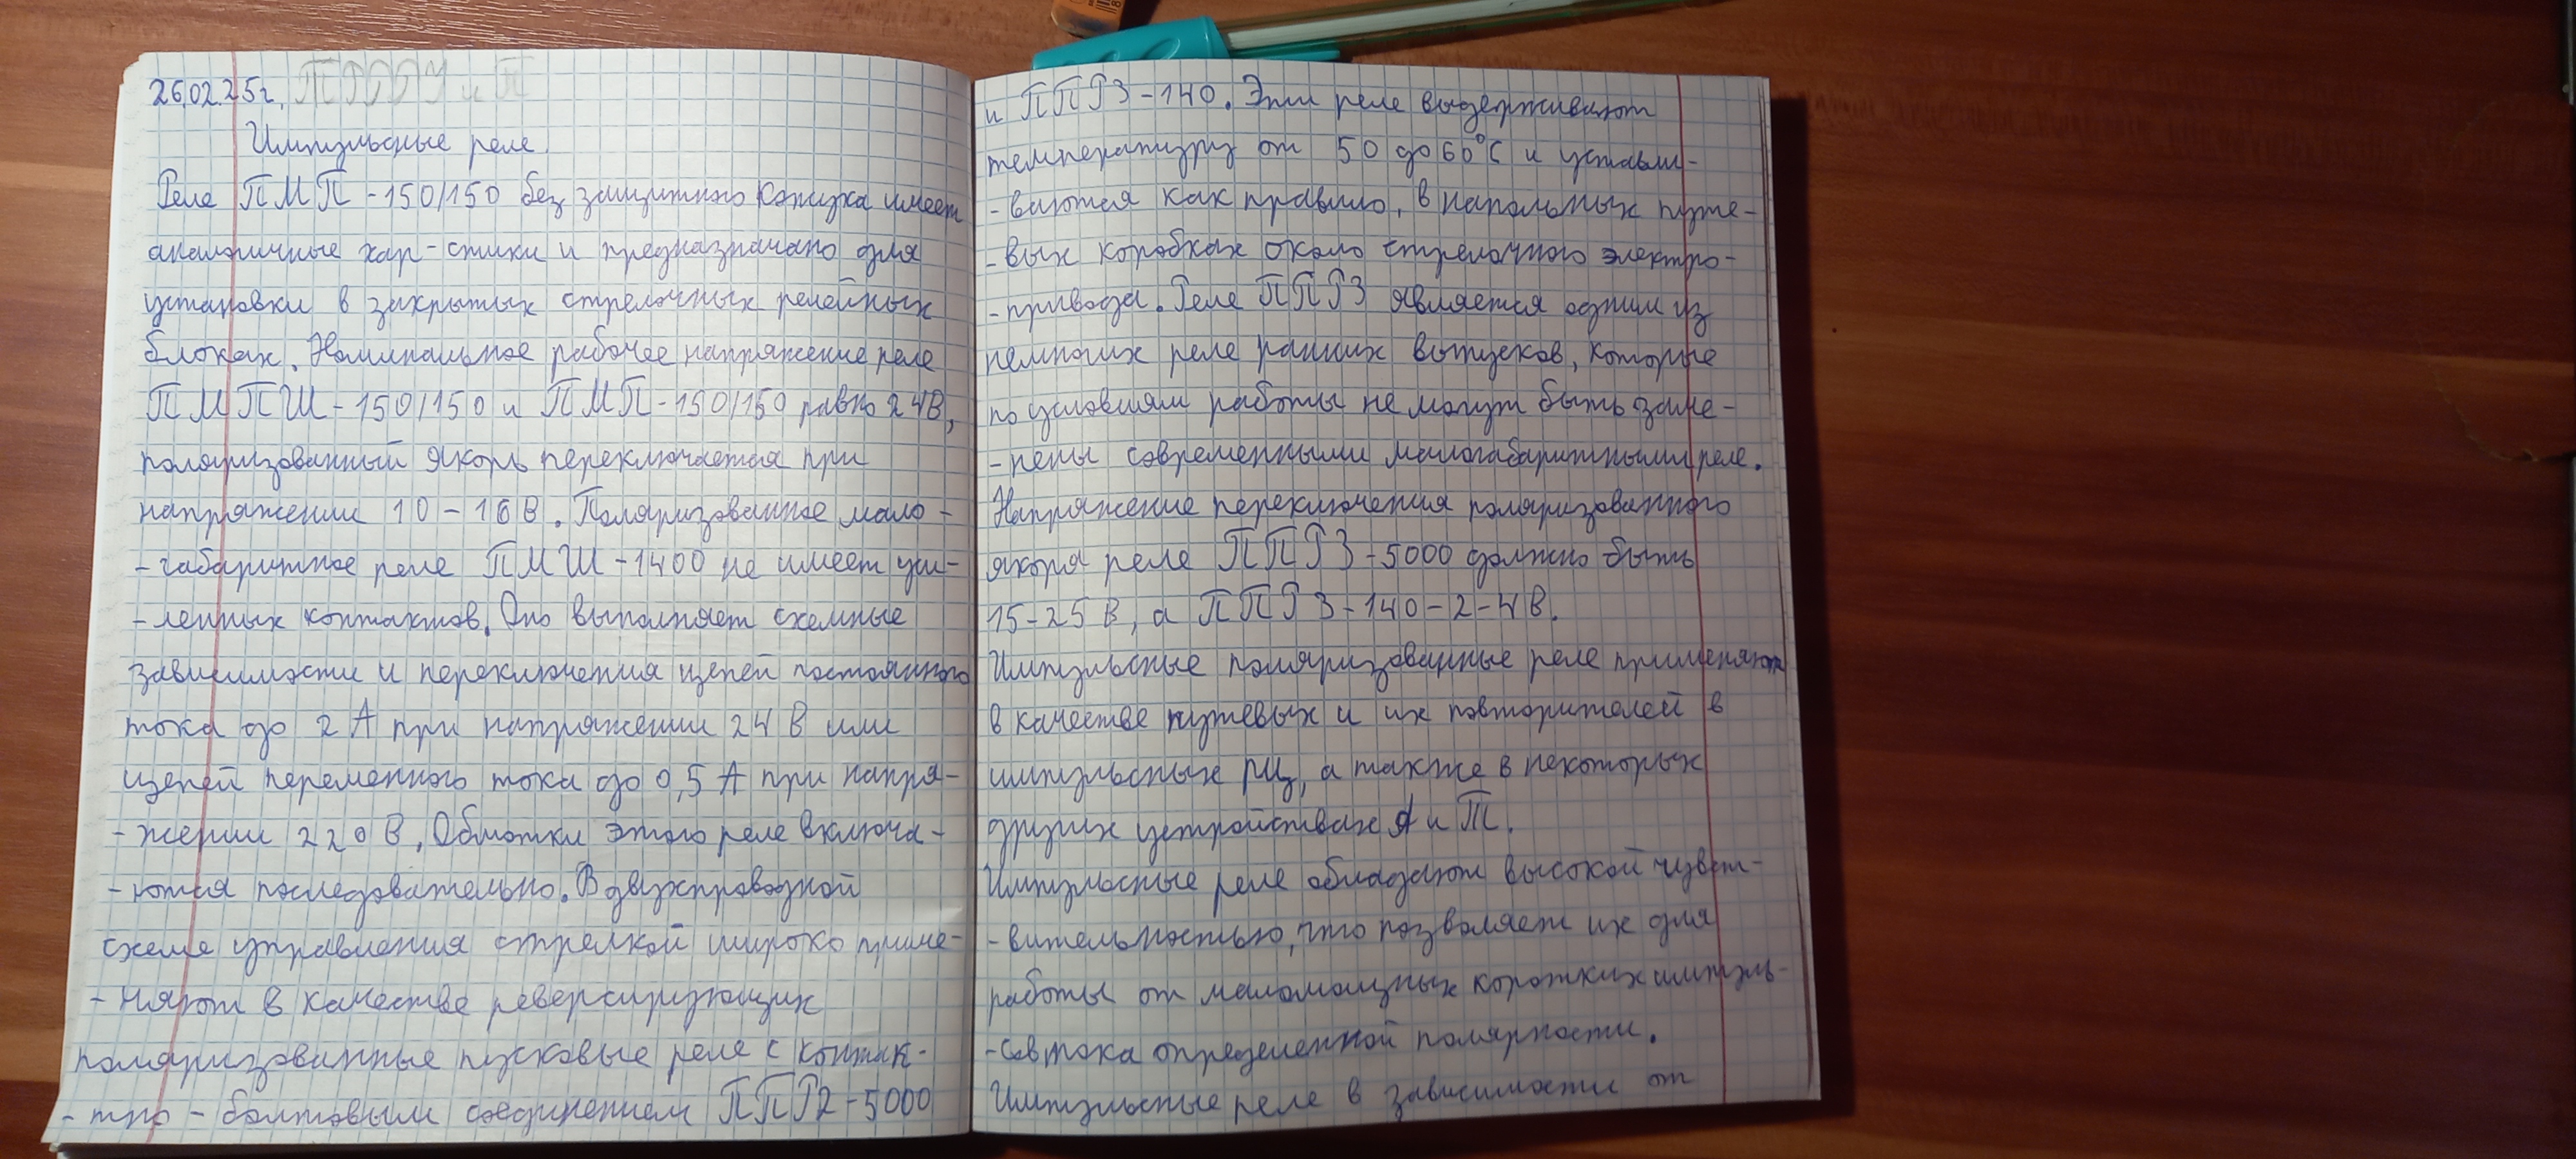 26.02.25г. ТРДДУ и П
Импульсные реле.
Реле ПМП-150/150 без защитного кожуха имеет
аналогичные хар-стики и предназначано для
установки в закрытых стрелочных релейных
блоках. Номинальное рабочее напряжение реле
ПМПШ-150/150 и ПМП-150/150 равно 24В,
поляризованный якорь переключается при
напряжении 10-16В. Поляризованное мало-
-габаритное реле ПМШ-1400 не имеет уси-
-ленных контактов. Оно выполняет схемные
зависимости и переключения цепей постоянного
тока до 2А при напряжении 24В или
цепей переменного тока до 0,5А при напря-
-жении 220В. Обмотки этого реле включа-
-ются последовательно. В двухпроводной
схеме управления стрелкой широко приме-
-няют в качестве реверсирующих
поляризованные пусковые реле с контак-
-тно-болтовым соединением ППР2-5000
и ППРЗ-140. Эти реле выдерживают
температуру от 50 до 60°С и устави-
-ваются как правило, в напольных путе-
-вых коробках около стрелочного электро-
-привода. Реле ППРЗ является одним из
немногих реле ранних выпусков, которые
по условиям работы не могут быть заме-
-нены современными малогабаритными реле.
Напряжение переключения поляризованного
якоря реле ППРЗ-5000 должно быть
15-25В, а ППРЗ-140-2-4В.
Импульсные поляризованные реле применяют
в качестве путевых и их повторителей в
импульсных РЦ, а также в некоторых
других устройствах А и Т.
Импульсные реле обладают высокой чувст-
-вительностью, что позволяет их для
работы от маломощных коротких импуль-
-сов тока определенной полярности.
Импульсные реле в зависимости от